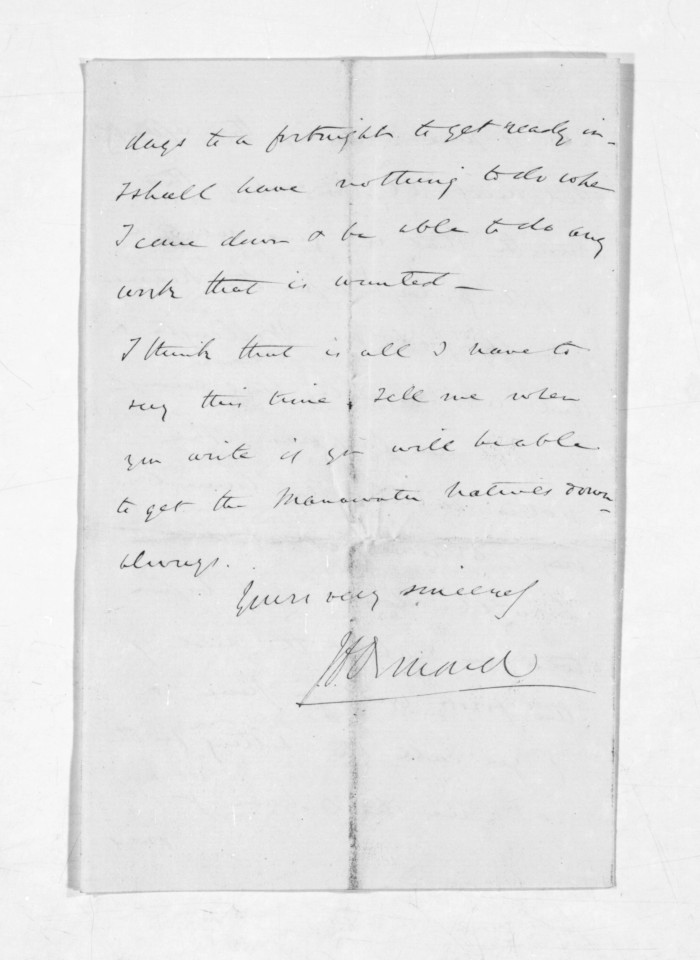 days to a fortnight to get ready in -
I shall have nothing to do when
I come down & be able to do any
work that is wanted -
I think that is all I have to
say this time. Tell me when
you write if you will be able
to get the Manawatu Natives down -
always.
Yours very sincerely
J D Ormond